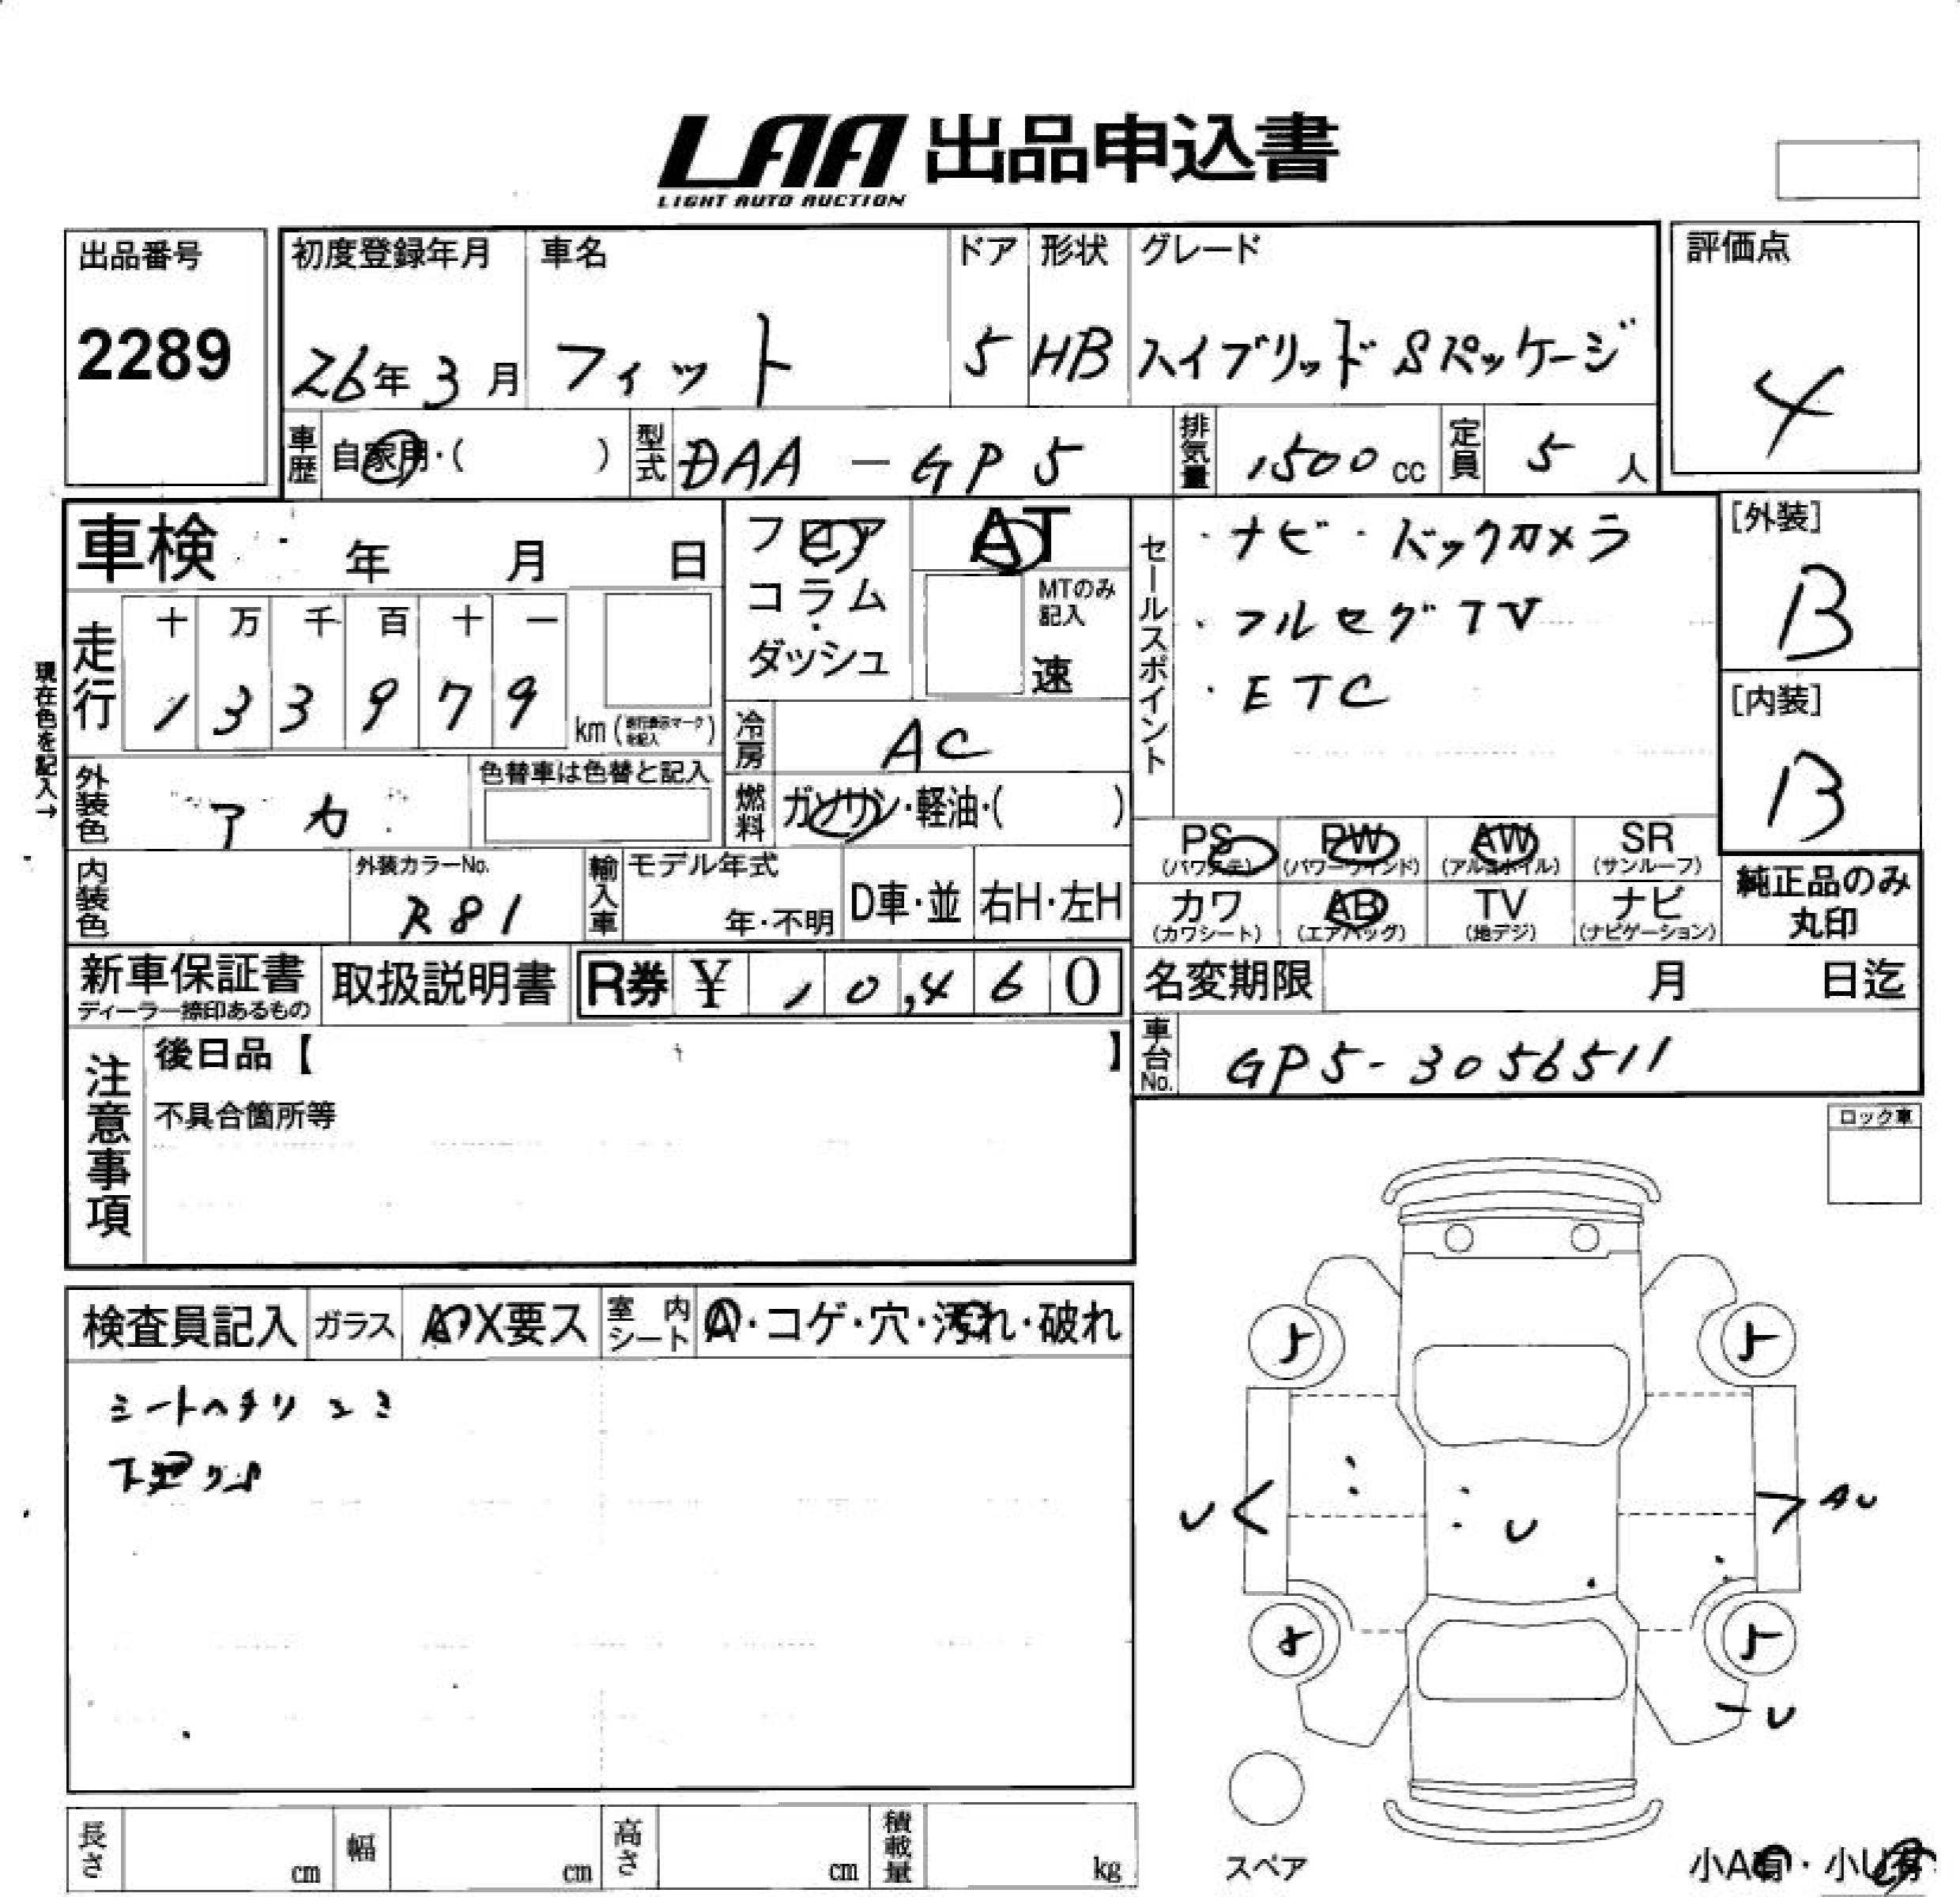 LAA 出品申込書
LIGHT AUTO AUCTION
出品番号
2289
初度登録年月
26年3月
車名
フィット
ドア
5
形状
HB
グレード
ハイブリッドSパッケージ
評価点
4
車歴
自家用・( )
型式
DAA-GP5
排気量
1500cc
定員
5人
車検 年 月 日
フロア
コラム
ダッシュ
AT
MTのみ
記入
速
セールスポイント
・ナビ・バックカメラ
・フルセグTV
・ETC
[外装]
B
[内装]
B
現在色を記入→
走行
十 万 千 百 十 一
1 3 3 9 7 9
km (走行表示マークを記入)
冷房
AC
外装色
アカ
色替車は色替と記入
燃料
ガソリン・軽油・( )
PS
(パワステ)
PW
(パワーウインド)
AW
(アルミホイル)
SR
(サンルーフ)
カワ
(カワシート)
AB
(エアバッグ)
TV
(地デジ)
ナビ
(ナビゲーション)
純正品のみ
丸印
内装色
外装カラーNo.
R81
輸入車
モデル年式
年・不明
D車・並
右H・左H
新車保証書
ディーラー捺印あるもの
取扱説明書
R券 ¥ 10,460
名変期限 月 日迄
車台No.
GP5-3056511
注意事項
後日品【 】
不具合箇所等
ロック車
検査員記入
ガラス
A・X要ス
室内シート
A・コゲ・穴・汚れ・破れ
シートヘタリ
U
AU
U
U
スペア
小A有・小U有
長さ cm
幅 cm
高さ cm
積載量 kg